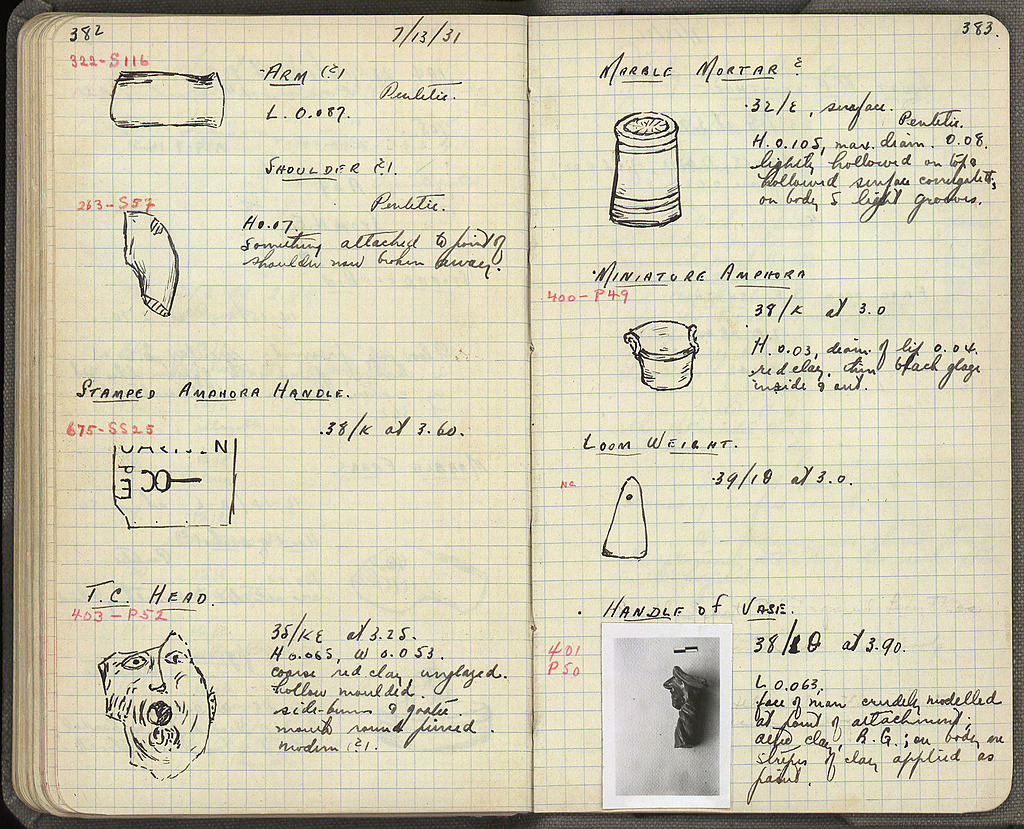 382
7/13/31
322-S116
ARM (?)
Pentelic.
L. 0.087.
SHOULDER (?).
263-S57
Pentelic.
H 0.07.
Something attached to point of
shoulder now broken away.
STAMPED AMPHORA HANDLE.
675-SS25
38/K at 3.60.
T.C. HEAD.
403-P52
35/KE at 3.25.
H 0.065, W 0.053.
coarse red clay unglazed.
hollow moulded.
side-burns & goatee.
mouth round pierced.
modern (?).
383.
MARBLE MORTAR ?
32/E, surface.
Pentelic.
H. 0.105, max. diam. 0.08.
lightly hollowed on top
hollowed surface corrugated,
on body 5 light grooves.
MINIATURE AMPHORA
400-P49
38/K at 3.0
H. 0.03, diam. of lip 0.04.
red clay, thin black glaze
inside & out.
LOOM WEIGHT.
NC
39/ΙΘ at 3.0.
HANDLE OF VASE.
401
P50
38/ΙΘ at 3.90.
L 0.063,
face of man crudely modelled
at point of attachment.
clay, B.G.; on body are
stripes of clay applied as
paint.